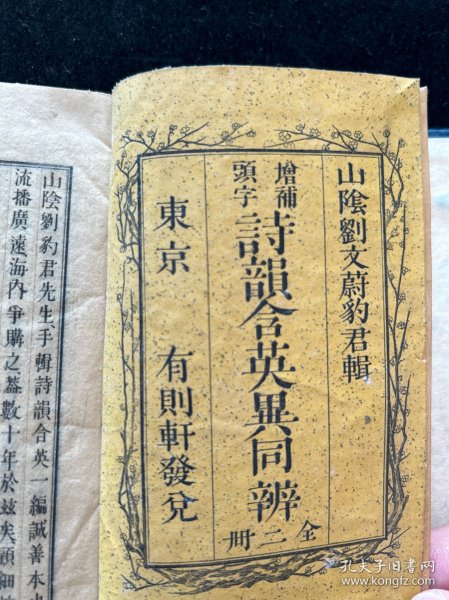 山陰劉文蔚豹君輯
增補
頭字
詩韻含英異同辨
全二冊
東京 有則軒發兌
山陰劉豹君先生手輯詩韻合英一編誠善本也
流播廣遠海內爭購之蓋數十年於茲矣頭細
孔夫子旧书网
www.kongfz.com